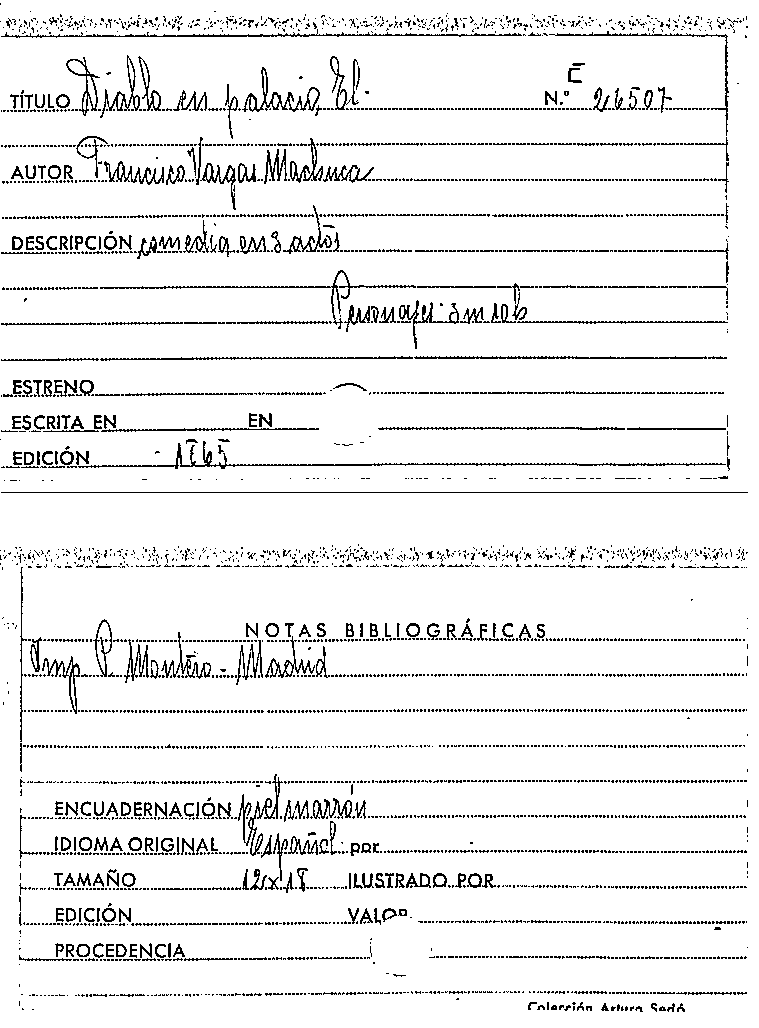 E
TÍTULO Diablo en palacio, El. N.º 26507
AUTOR Francisco Vargas Machuca
DESCRIPCIÓN comedia en 3 actos
Personajes:
ESTRENO
ESCRITA EN EN
EDICIÓN
NOTAS BIBLIOGRÁFICAS
Imp P. Montero - Madrid
ENCUADERNACIÓN piel marrón
IDIOMA ORIGINAL Español por
TAMAÑO 12x18 ILUSTRADO POR
EDICIÓN VALOR
PROCEDENCIA
Colección Arturo Sedó